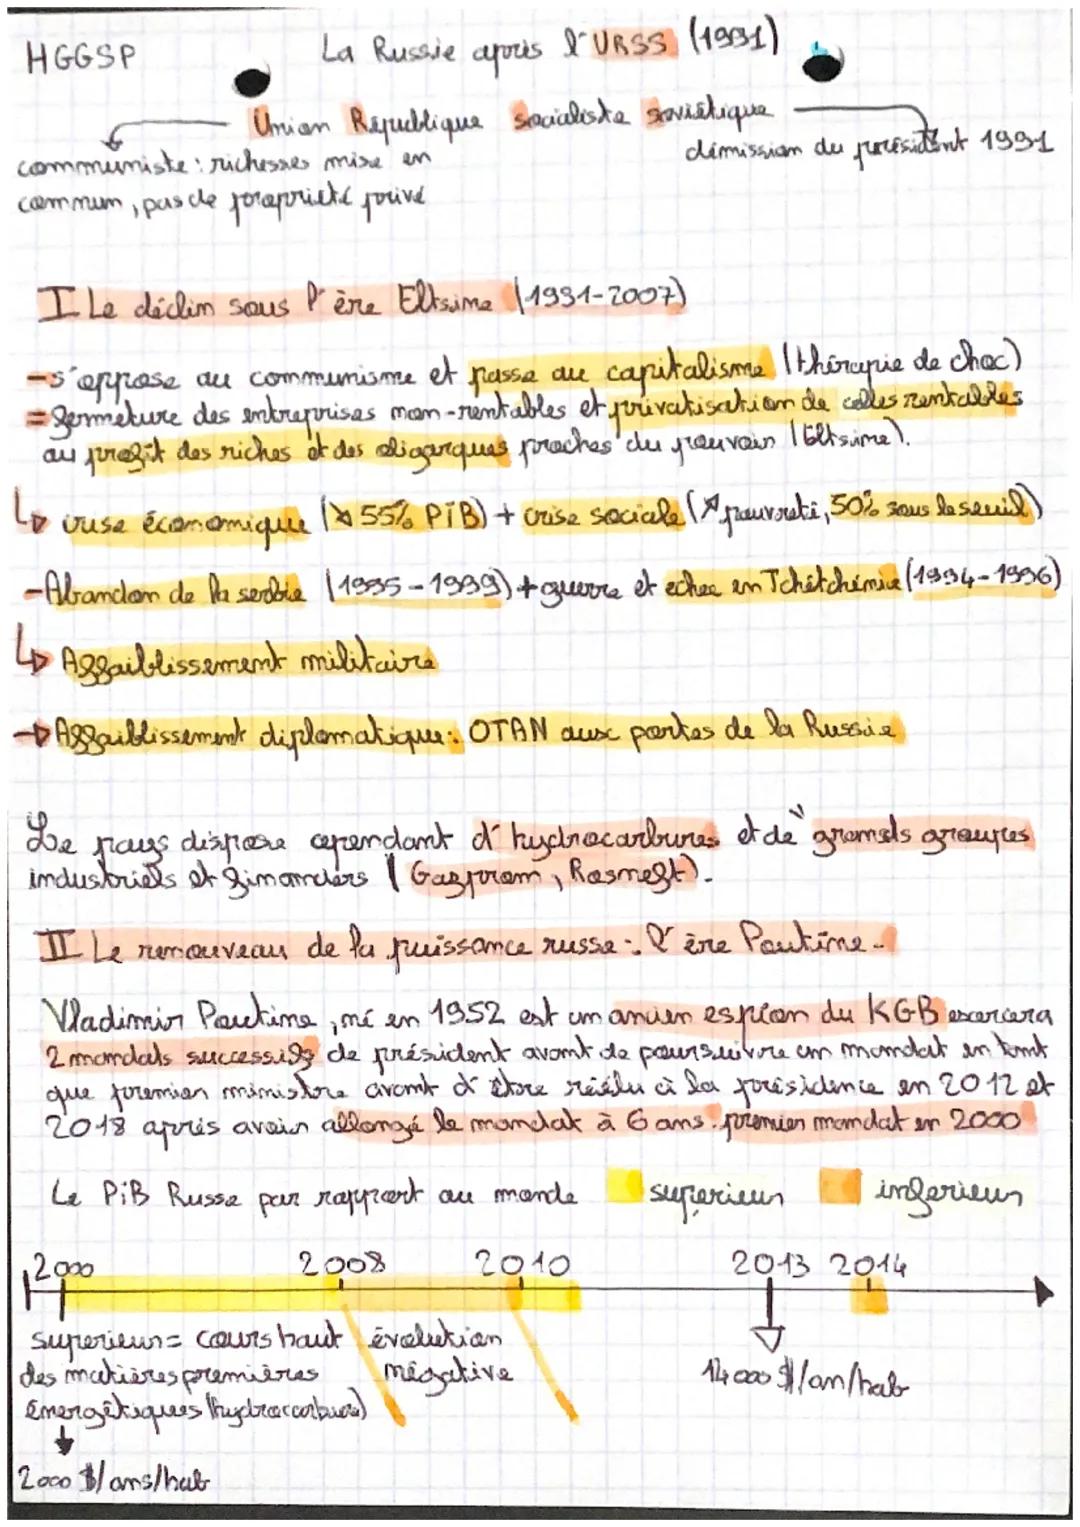 HGGSP
La Russie après l'URSS (1991)
Union République socialiste soviétique
communiste : richesses mise en
commun, pas de propriété privé
démission du président 1991
I Le déclin sous l'ère Eltsine (1991-2007)
-s'oppose au communisme et passe au capitalisme (thérapie de choc)
= fermeture des entreprises non-rentables et privatisation de celles rentables
au profit des riches et des oligarques proches du pouvoir (Eltsine).
↳ crise économique (↘ 55% PiB) + crise sociale (↗ pauvreté, 50% sous le seuil)
-Abandon de la serbie (1995-1999) + guerre et echec en Tchétchénie (1994-1996)
↳ Affaiblissement militaire
→ Affaiblissement diplomatique : OTAN aux portes de la Russie
Le pays dispose cependant d'hydrocarbures et de grands groupes
industriels et financiers (Gazprom, Rosneft).
II Le renouveau de la puissance russe : l'ère Poutine.
Vladimir Poutine, né en 1952 est un ancien espion du KGB exercera
2 mandats successifs de président avant de poursuivre un mandat en tant
que premier ministre avant d'être réélu à la présidence en 2012 et
2018 après avoir allongé le mandat à 6 ans. premier mandat en 2000
Le PiB Russe par rapport au monde
superieur
inferieur
2000 2008 2010 2013 2014
superieur = cours haut
des matières premières
énergétiques (hydrocarbure)
évolution
négative
14 000 $/an/hab
2000 $/ans/hab